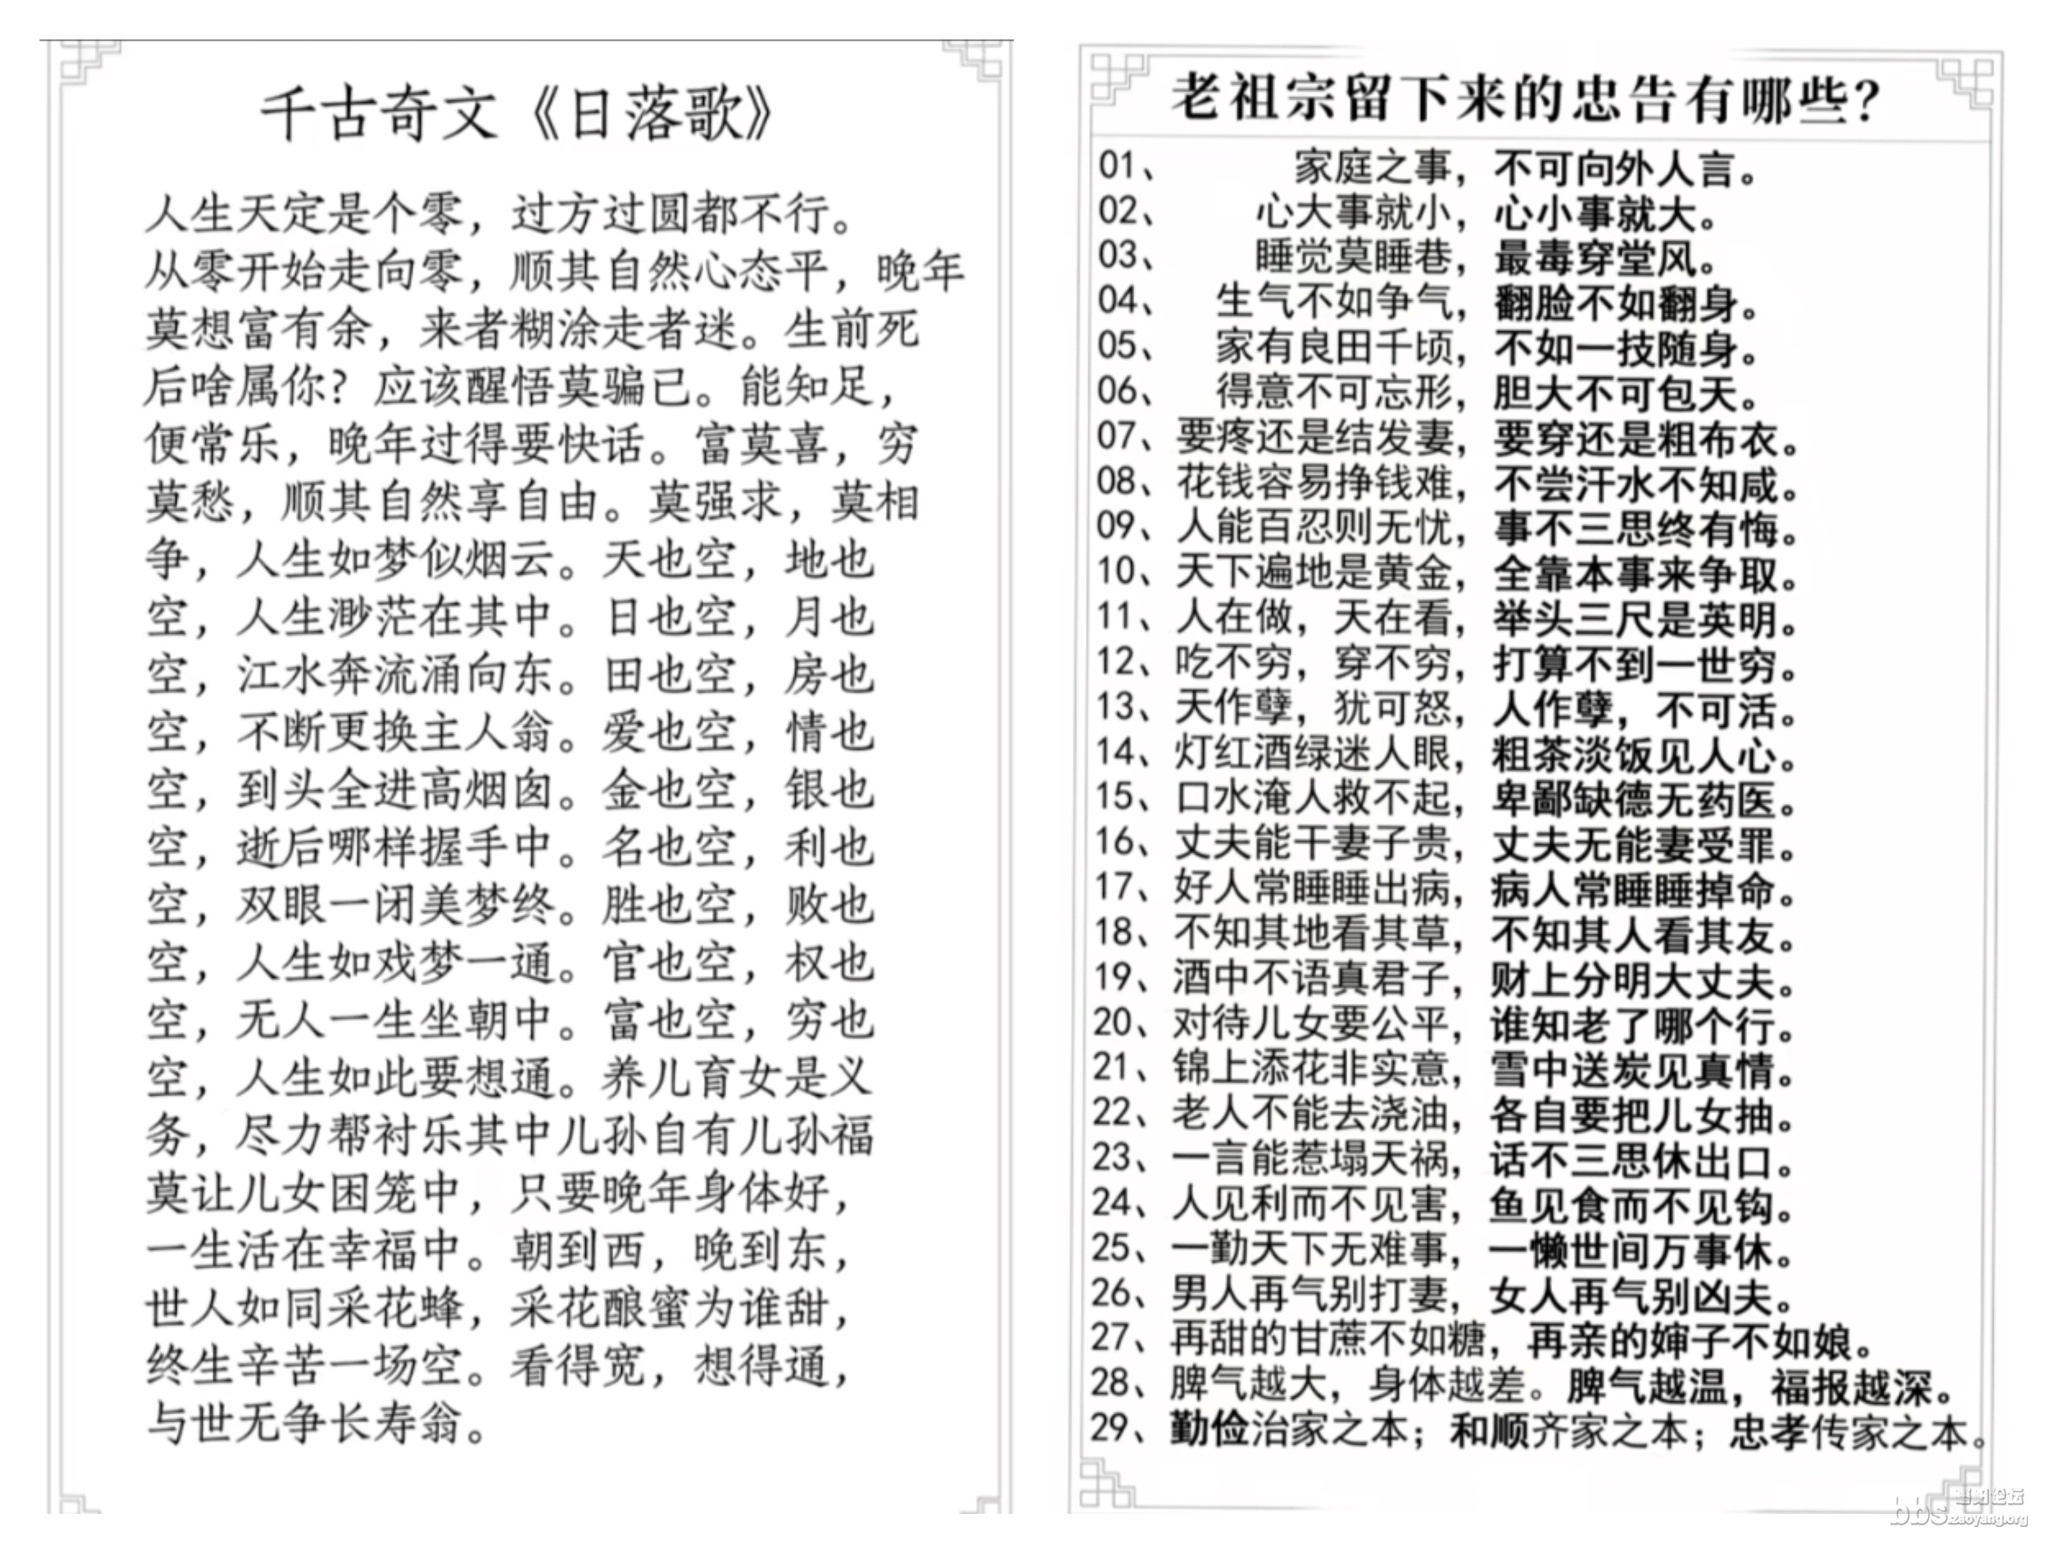 千古奇文《日落歌》
人生天定是个零，过方过圆都不行。
从零开始走向零，顺其自然心态平，晚年
莫想富有余，来者糊涂走者迷。生前死
后啥属你？应该醒悟莫骗已。能知足，
便常乐，晚年过得要快话。富莫喜，穷
莫愁，顺其自然享自由。莫强求，莫相
争，人生如梦似烟云。天也空，地也
空，人生渺茫在其中。日也空，月也
空，江水奔流涌向东。田也空，房也
空，不断更换主人翁。爱也空，情也
空，到头全进高烟囱。金也空，银也
空，逝后哪样握手中。名也空，利也
空，双眼一闭美梦终。胜也空，败也
空，人生如戏梦一通。官也空，权也
空，无人一生坐朝中。富也空，穷也
空，人生如此要想通。养儿育女是义
务，尽力帮衬乐其中儿孙自有儿孙福
莫让儿女困笼中，只要晚年身体好，
一生活在幸福中。朝到西，晚到东，
世人如同采花蜂，采花酿蜜为谁甜，
终生辛苦一场空。看得宽，想得通，
与世无争长寿翁。
老祖宗留下来的忠告有哪些？
01、家庭之事，不可向外人言。
02、心大事就小，心小事就大。
03、睡觉莫睡巷，最毒穿堂风。
04、生气不如争气，翻脸不如翻身。
05、家有良田千顷，不如一技随身。
06、得意不可忘形，胆大不可包天。
07、要疼还是结发妻，要穿还是粗布衣。
08、花钱容易挣钱难，不尝汗水不知咸。
09、人能百忍则无忧，事不三思终有悔。
10、天下遍地是黄金，全靠本事来争取。
11、人在做，天在看，举头三尺是英明。
12、吃不穷，穿不穷，打算不到一世穷。
13、天作孽，犹可怒，人作孽，不可活。
14、灯红酒绿迷人眼，粗茶淡饭见人心。
15、口水淹人救不起，卑鄙缺德无药医。
16、丈夫能干妻子贵，丈夫无能妻受罪。
17、好人常睡睡出病，病人常睡睡掉命。
18、不知其地看其草，不知其人看其友。
19、酒中不语真君子，财上分明大丈夫。
20、对待儿女要公平，谁知老了哪个行。
21、锦上添花非实意，雪中送炭见真情。
22、老人不能去浇油，各自要把儿女抽。
23、一言能惹塌天祸，话不三思休出口。
24、人见利而不见害，鱼见食而不见钩。
25、一勤天下无难事，一懒世间万事休。
26、男人再气别打妻，女人再气别凶夫。
27、再甜的甘蔗不如糖，再亲的婶子不如娘。
28、脾气越大，身体越差。脾气越温，福报越深。
29、勤俭治家之本；和顺齐家之本；忠孝传家之本。
bbs.zaoyang.org